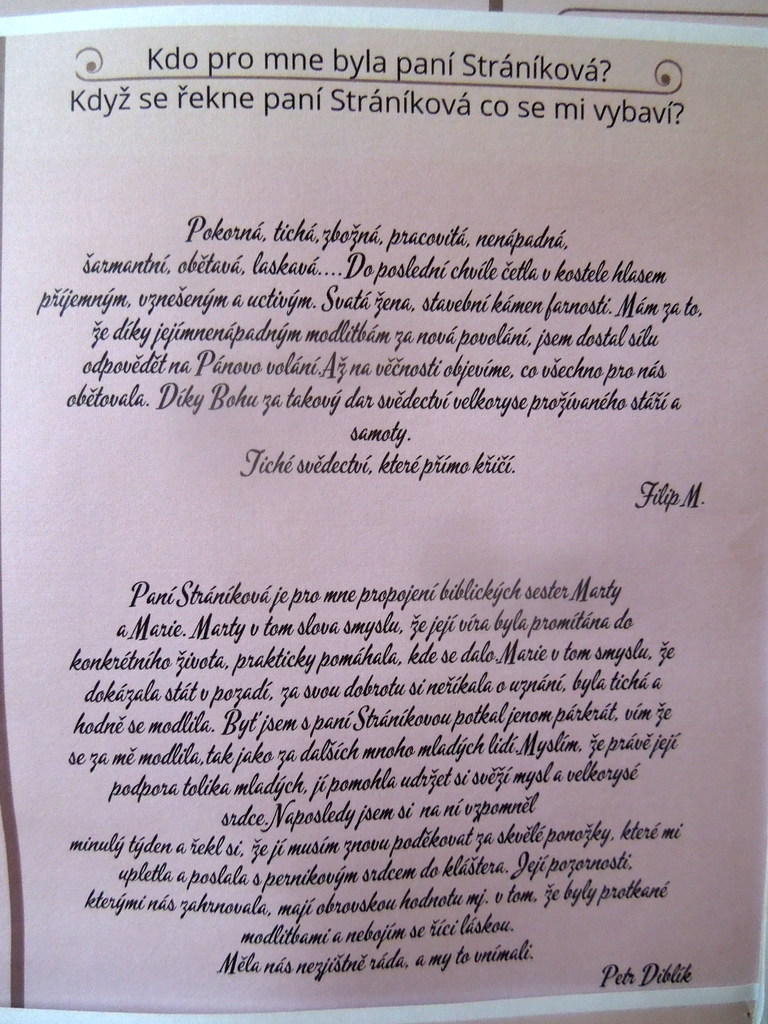 Kdo pro mne byla paní Stráníková?
Když se řekne paní Stráníková co se mi vybaví?
Pokorná, tichá,zbožná, pracovitá, nenápadná,
šarmantní, obětavá, laskavá....Do poslední chvíle četla v kostele hlasem
příjemným, vznešeným a uctivým. Svatá žena, stavební kámen farnosti. Mám za to,
že díky jejímnenápadným modlitbám za nová povolání, jsem dostal sílu
odpovědět na Pánovo volání.Až na věčnosti objevíme, co všechno pro nás
obětovala. Díky Bohu za takový dar svědectví velkoryse prožívaného stáří a
samoty.
Tiché svědectví, které přímo křičí.
Filip M.
Paní Stráníková je pro mne propojení biblických sester Marty
a Marie. Marty v tom slova smyslu, že její víra byla promítána do
konkrétního života, prakticky pomáhala, kde se dalo.Marie v tom smyslu, že
dokázala stát v pozadí, za svou dobrotu si neříkala o uznání, byla tichá a
hodně se modlila. Byť jsem s paní Stráníkovou potkal jenom párkrát, vím že
se za mě modlila,tak jako za dalších mnoho mladých lidí.Myslím, že právě její
podpora tolika mladých, jí pomohla udržet si svěží mysl a velkorysé
srdce.Naposledy jsem si na ní vzpomněl
minulý týden a řekl si, že jí musím znovu poděkovat za skvělé ponožky, které mi
upletla a poslala s pernikovým srdcem do kláštera. Její pozornosti,
kterými nás zahrnovala, mají obrovskou hodnotu mj. v tom, že byly protkané
modlitbami a nebojím se říci láskou.
Měla nás nezjištně ráda, a my to vnímali.
Petr Diblík